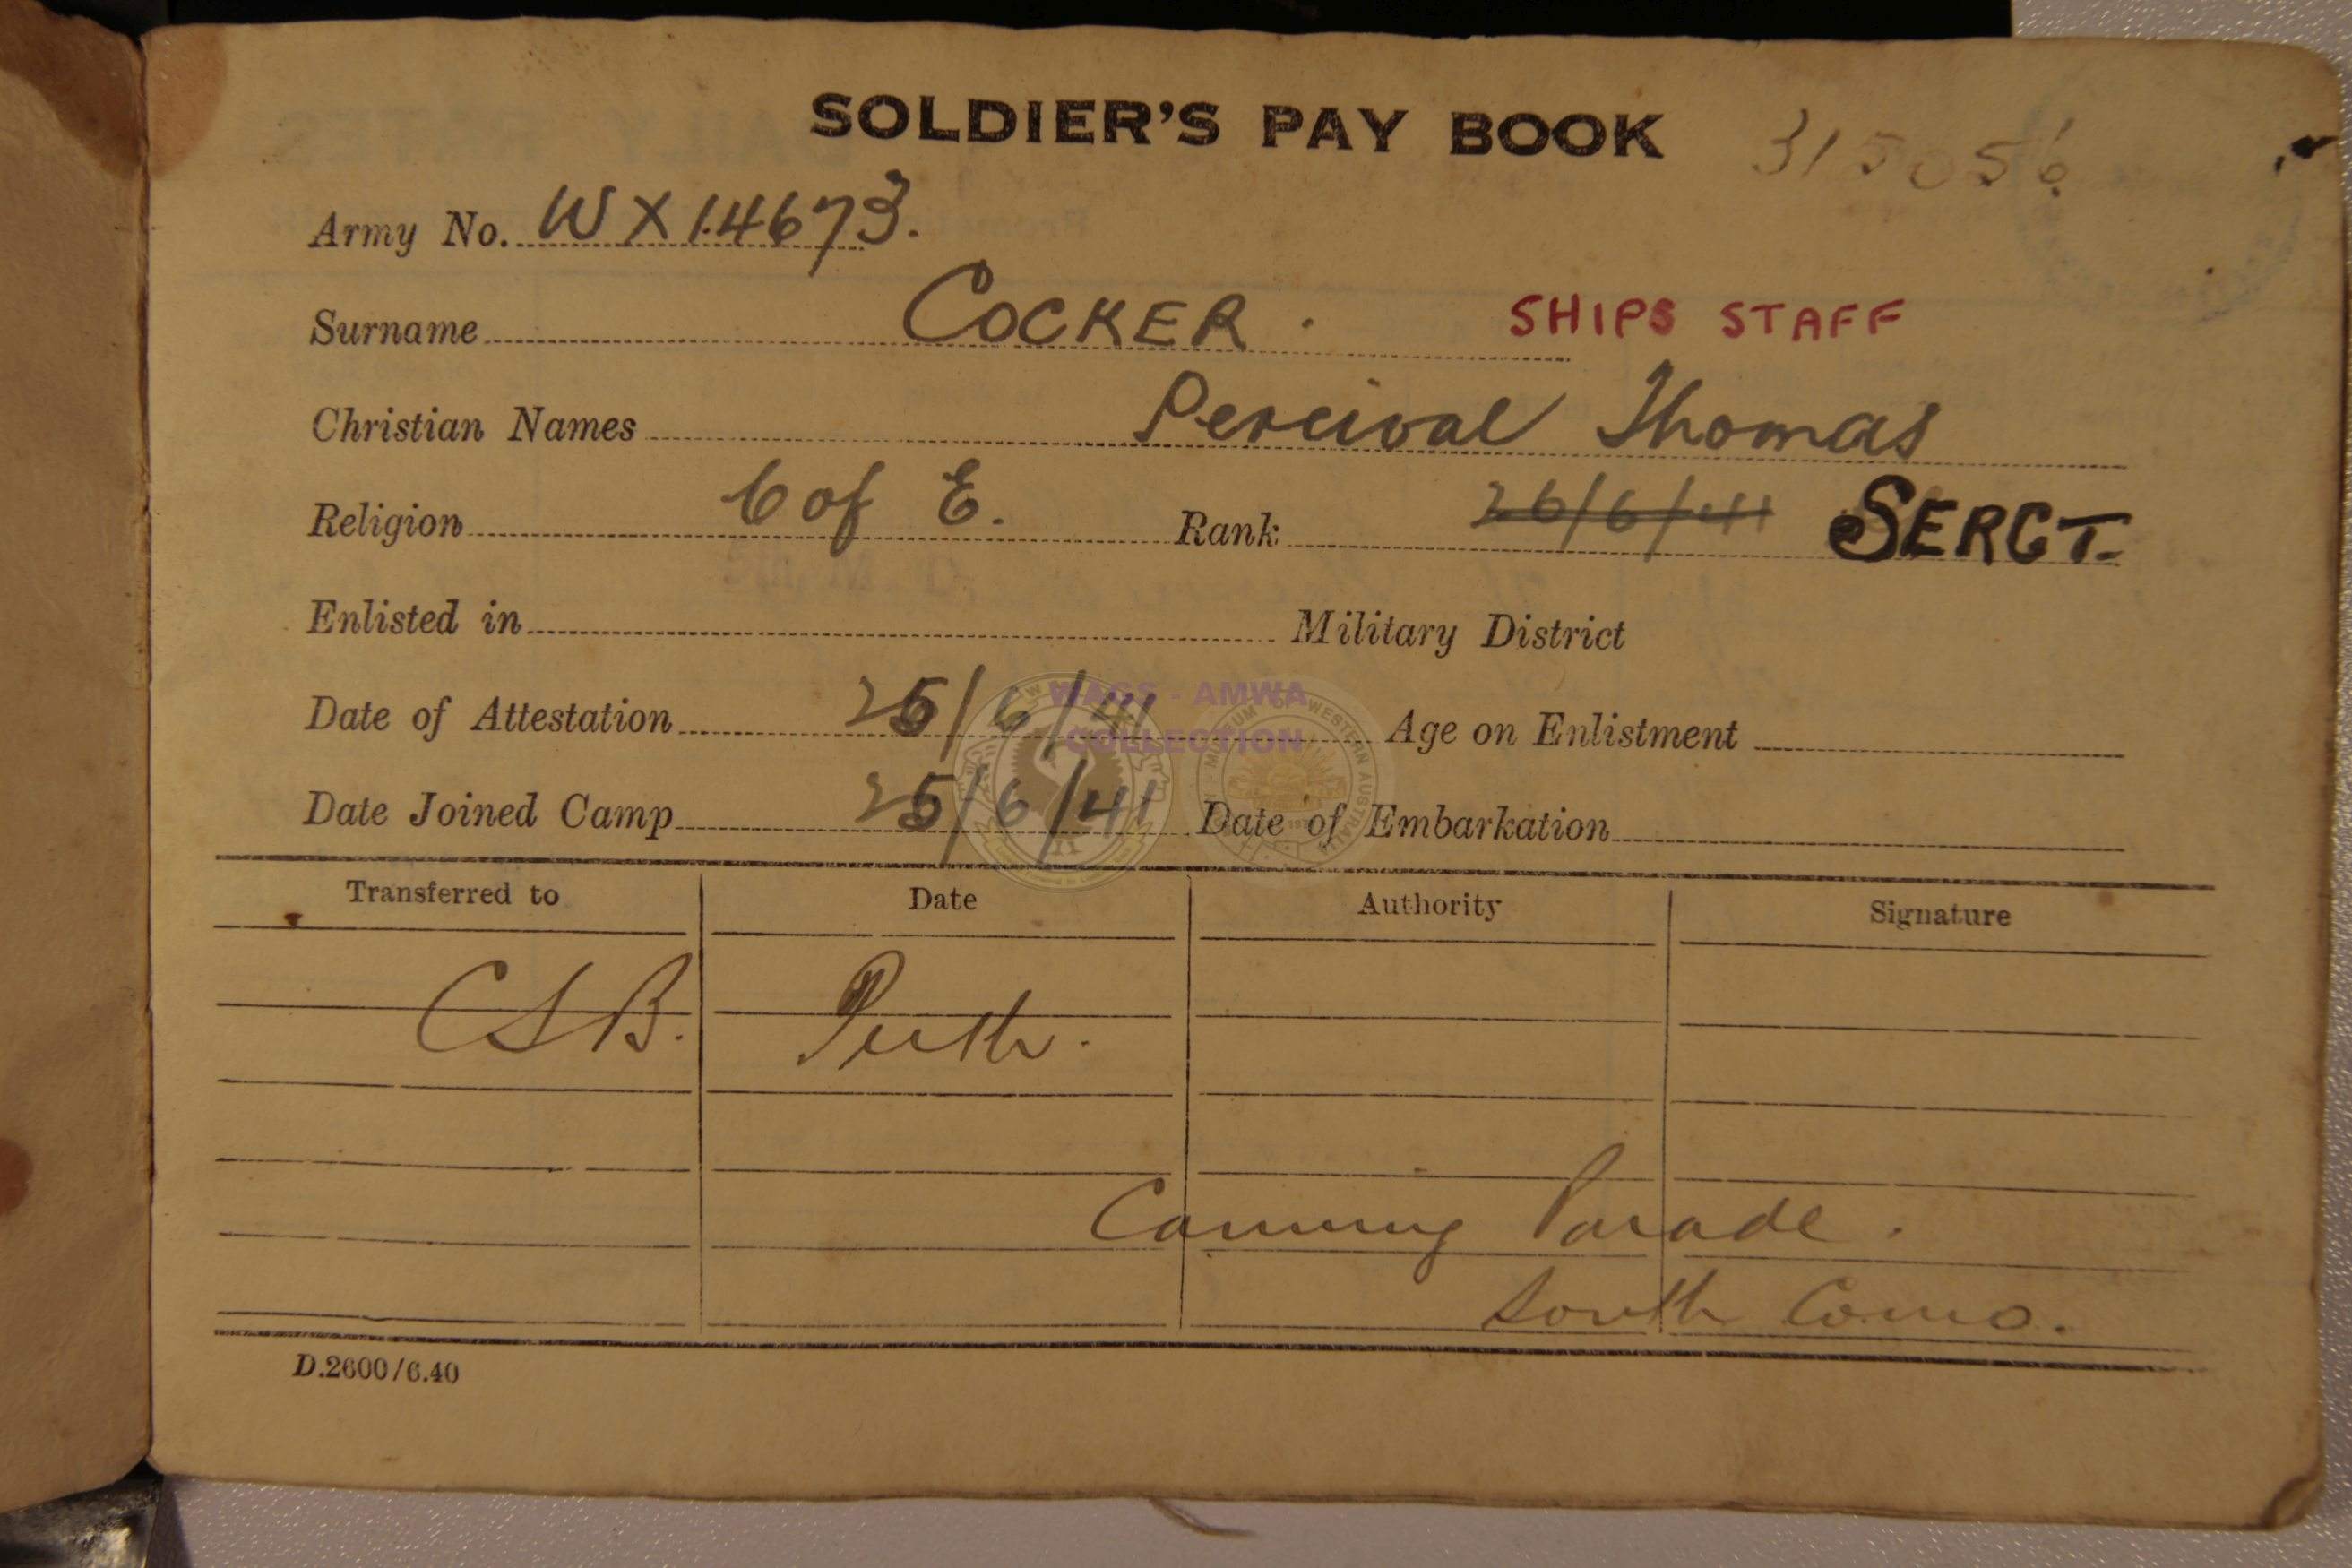 SOLDIER'S PAY BOOK 315056
Army No. WX14673.
Surname COCKER. SHIPS STAFF
Christian Names Percival Thomas
Religion C of E. Rank 26/6/41 SERGT.
Enlisted in Military District
Date of Attestation 25/6/41 Age on Enlistment
Date Joined Camp 25/6/41 Date of Embarkation
WAGS - AMWA
COLLECTION
Transferred to Date Authority Signature
CSB. Perth.
Canning Parade.
South Como.
D.2600/6.40